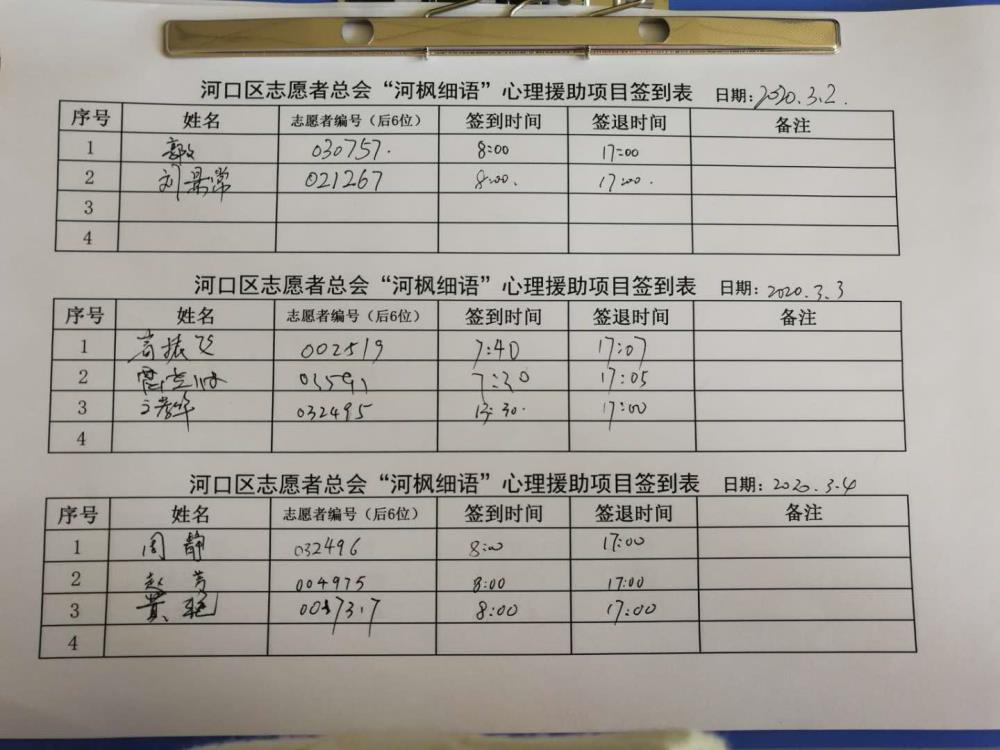 河口区志愿者总会“河枫细语”心理援助项目签到表 日期:2020.3.2.
序号 姓名 志愿者编号（后6位） 签到时间 签退时间 备注
1 030757. 8:00 17:00
2 刘景常 021267 8:00. 17:00.
3
4
河口区志愿者总会“河枫细语”心理援助项目签到表 日期:2020.3.3
序号 姓名 志愿者编号（后6位） 签到时间 签退时间 备注
1 高振飞 002519 7:40 17:07
2 7:30 17:05
3 032495 13:30. 17:00
4
河口区志愿者总会“河枫细语”心理援助项目签到表 日期:2020.3.4
序号 姓名 志愿者编号（后6位） 签到时间 签退时间 备注
1 周静 032496 8:00 17:00
2 赵芳 004975 8:00 17:00
3 8:00 17:00
4